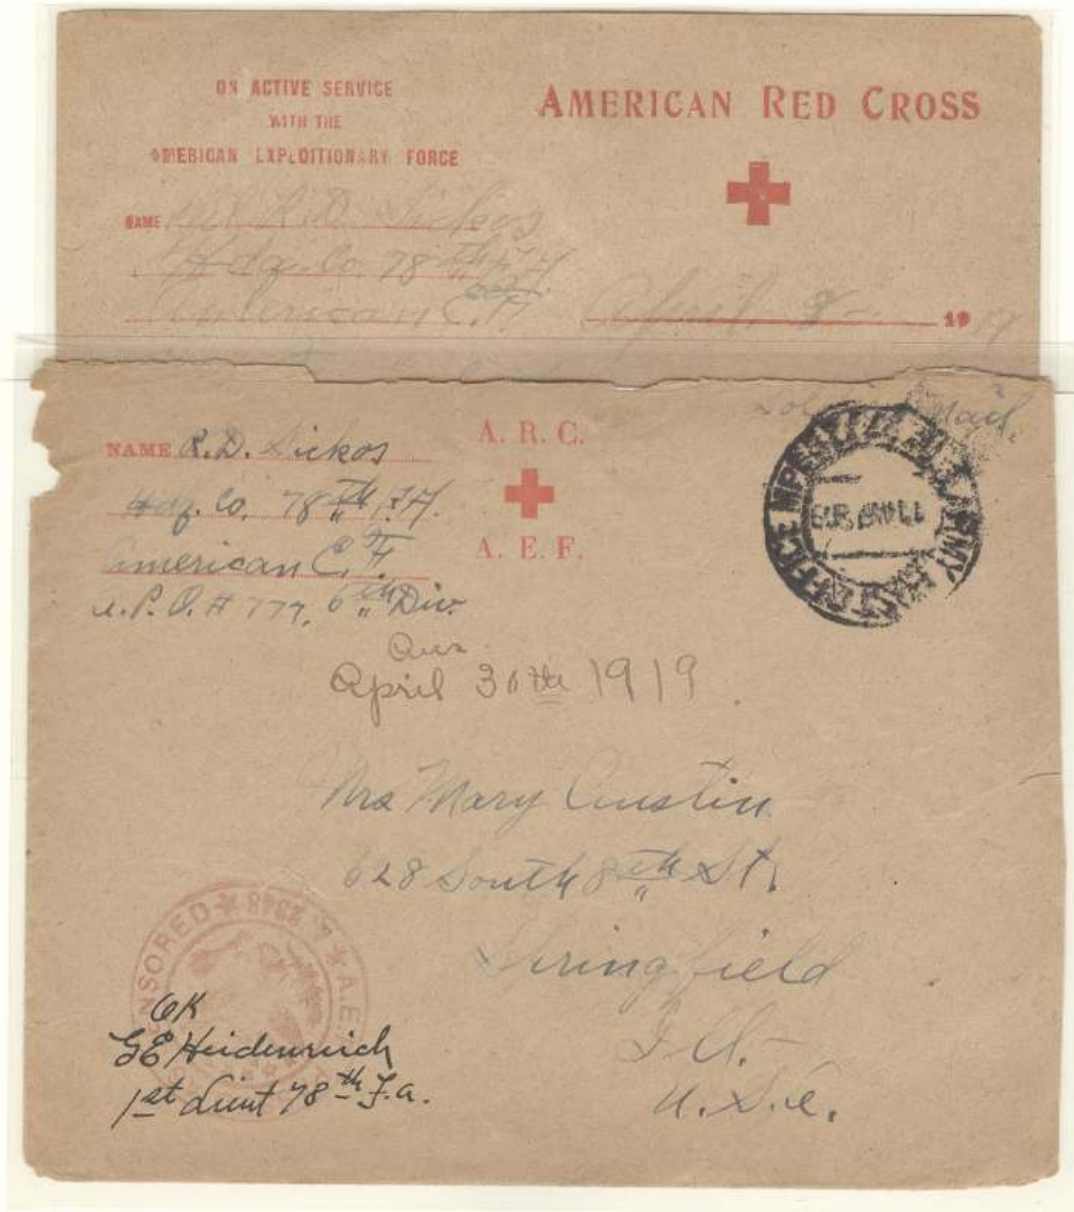 ON ACTIVE SERVICE
WITH THE
AMERICAN EXPEDITIONARY FORCE
AMERICAN RED CROSS
NAME R. D. Sickos
Hdq. Co. 78th F.A.
American E.F.
April 8 - 1919
Mail.
NAME R. D. Sickos
Hdq. Co. 78th F.A.
American E. F.
A. P. O. # 777, 6th Div.
A. R. C.
A. E. F.
ARMY POST OFFICE
Ans
April 30th 1919
Mrs Mary Austin
628 South 8th St.
Springfield
Ill.
U. S. A.
CENSORED A.E.
OK
GE Heidenreich
1st Lieut 78th F.a.